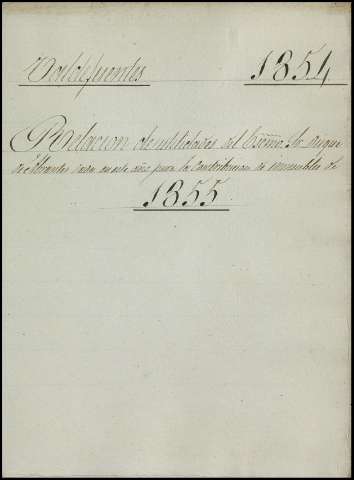 Valdefuentes
1854
Relacion de utilidades del Escmo. Sr. Duque
de Abrantes en este año para la Contribucion de inmuebles de
1855